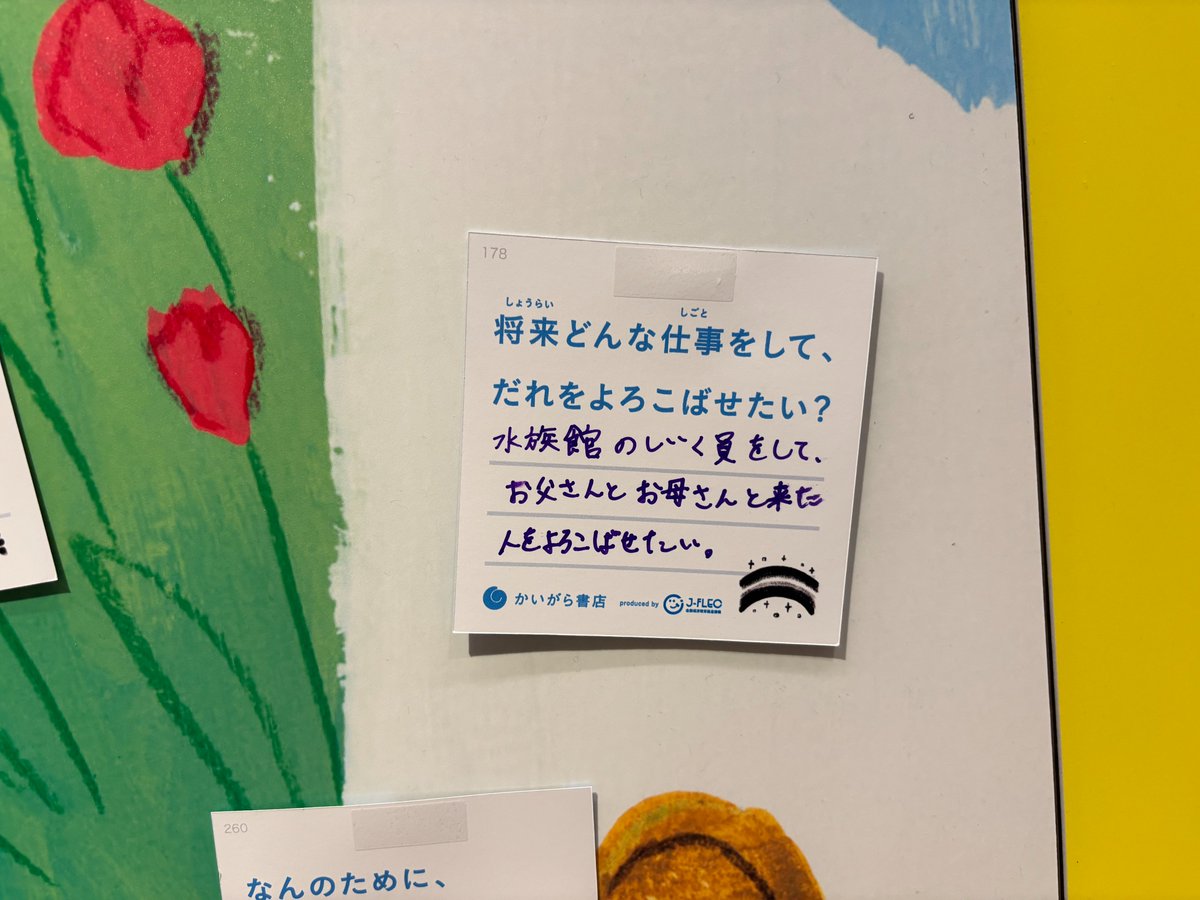 178
しょうらい しごと
将来どんな仕事をして、
だれをよろこばせたい?
水族館のしいく員をして、
お父さんとお母さんと来た
人をよろこばせたい。
かいがら書店 produced by J-FLEC
260
なんのために、